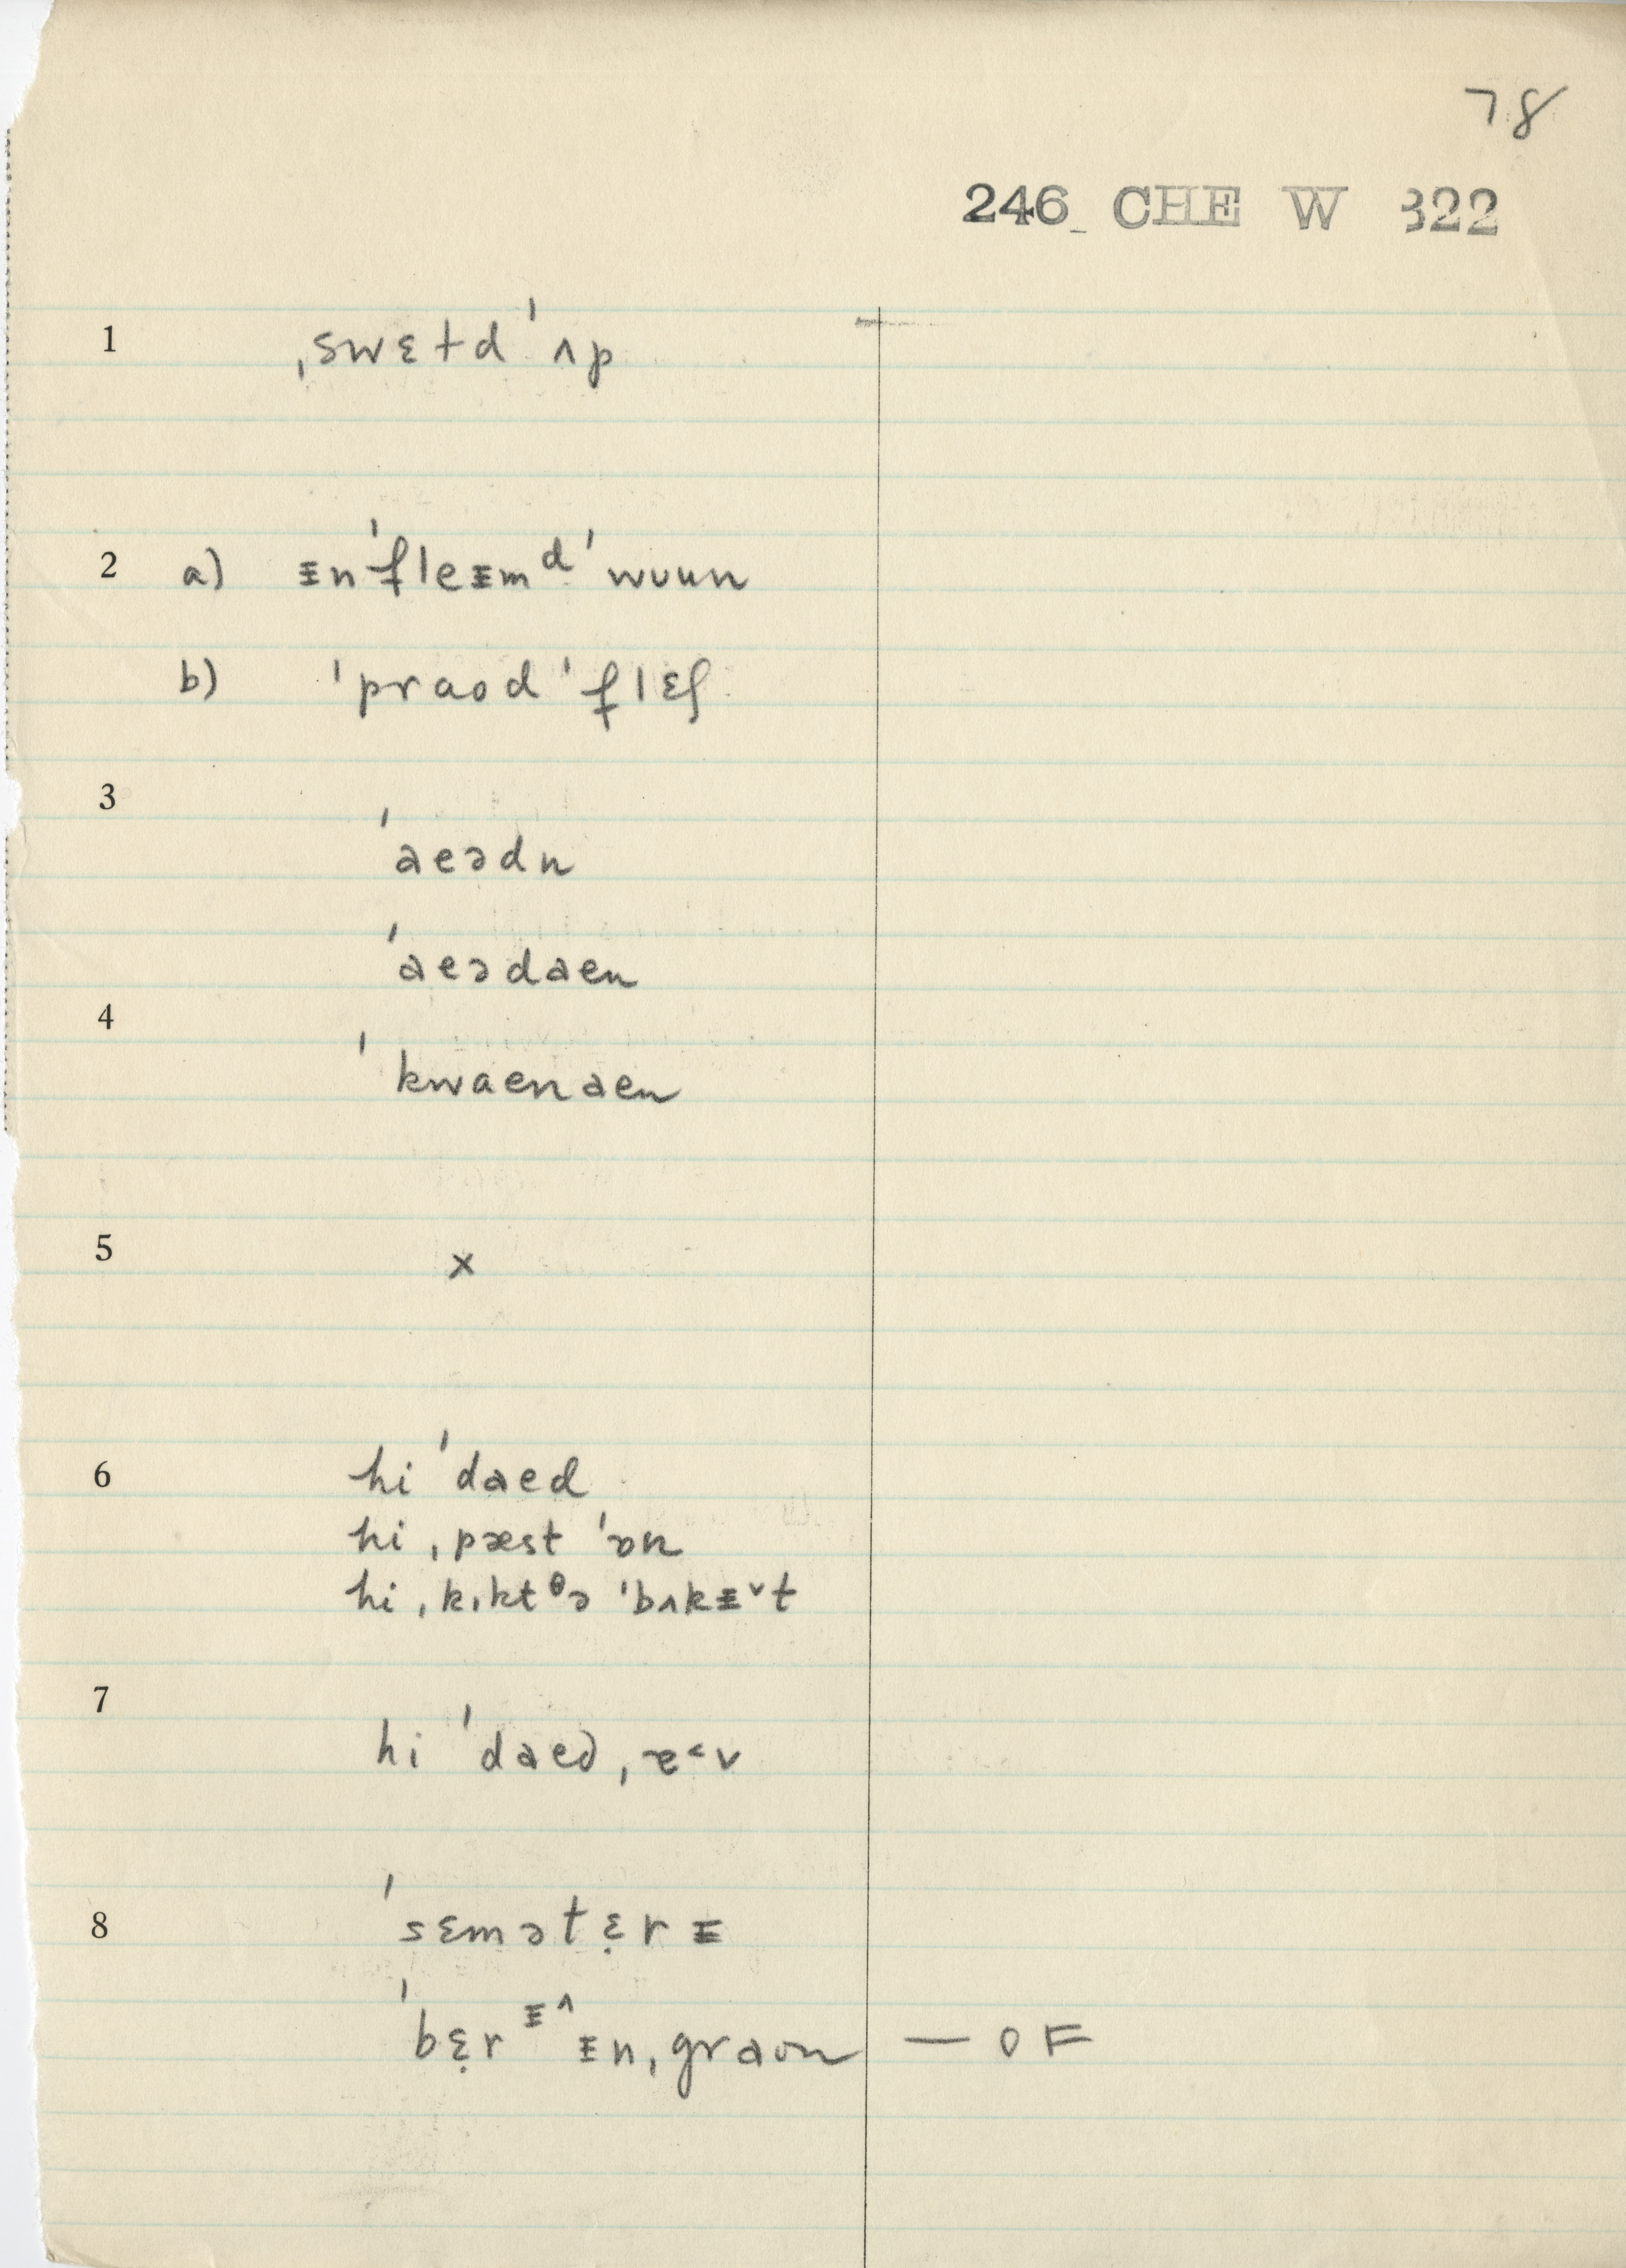 78
246 CHE W 322
1 ˌswɛtd ˈʌp
2 a) ᵻnˈfleᵻmᵈ ˈwuun
b) ˈpraod ˈflɛʃ
3 ˈaeədn
ˈaeədaen
4 ˈkwaenaen
5 x
6 hi ˈdaed
hi ˌpæst ˈɒn
hi ˌkɪktᶿə ˈbʌkᵻ˅t
7 hi ˈdaed ˌɐ˂v
8 ˈsɛmətɛ̣rᵻ
ˈbɛ̣rᵻ^ ᵻnˌgraʊn — OF